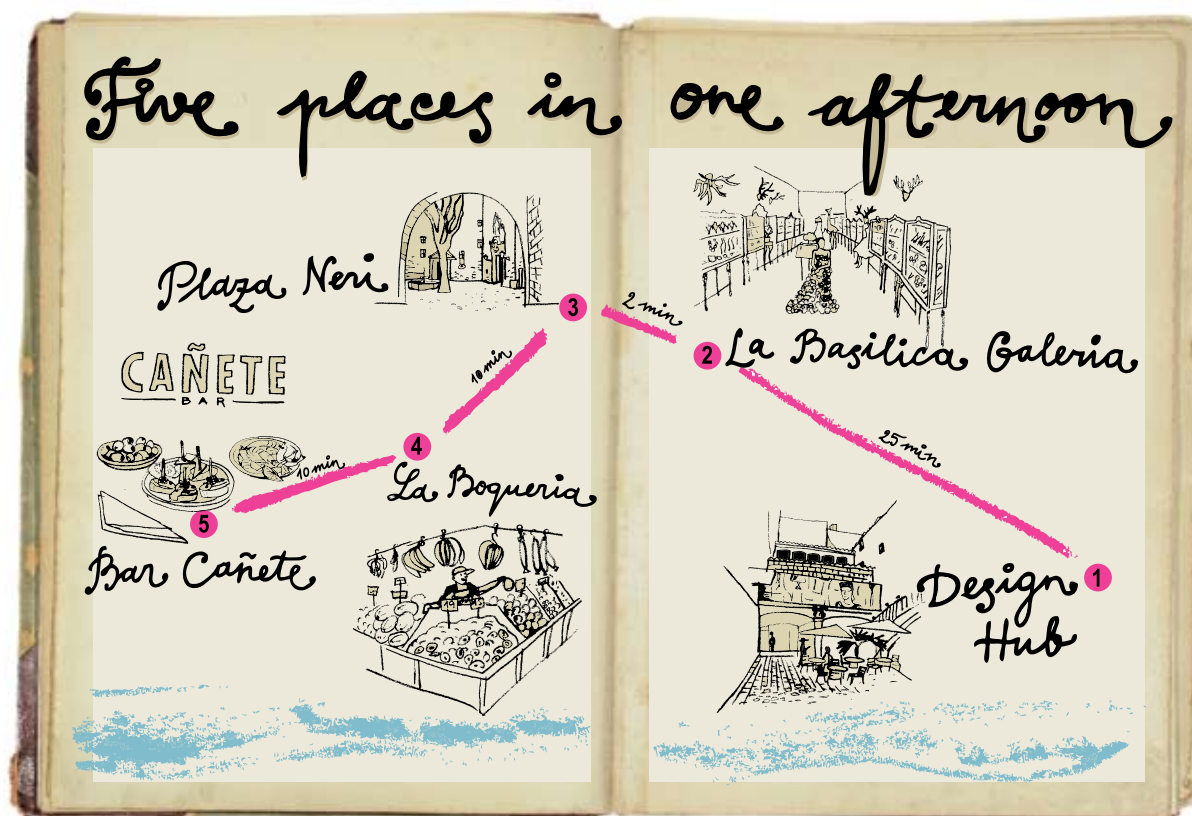 Five places in one afternoon
Plaza Neri
3
2 min
2
La Basilica Galeria
CAÑETE
BAR
10 min
4
10 min
La Boqueria
25 min
5
Bar Cañete
Design
Hub
1